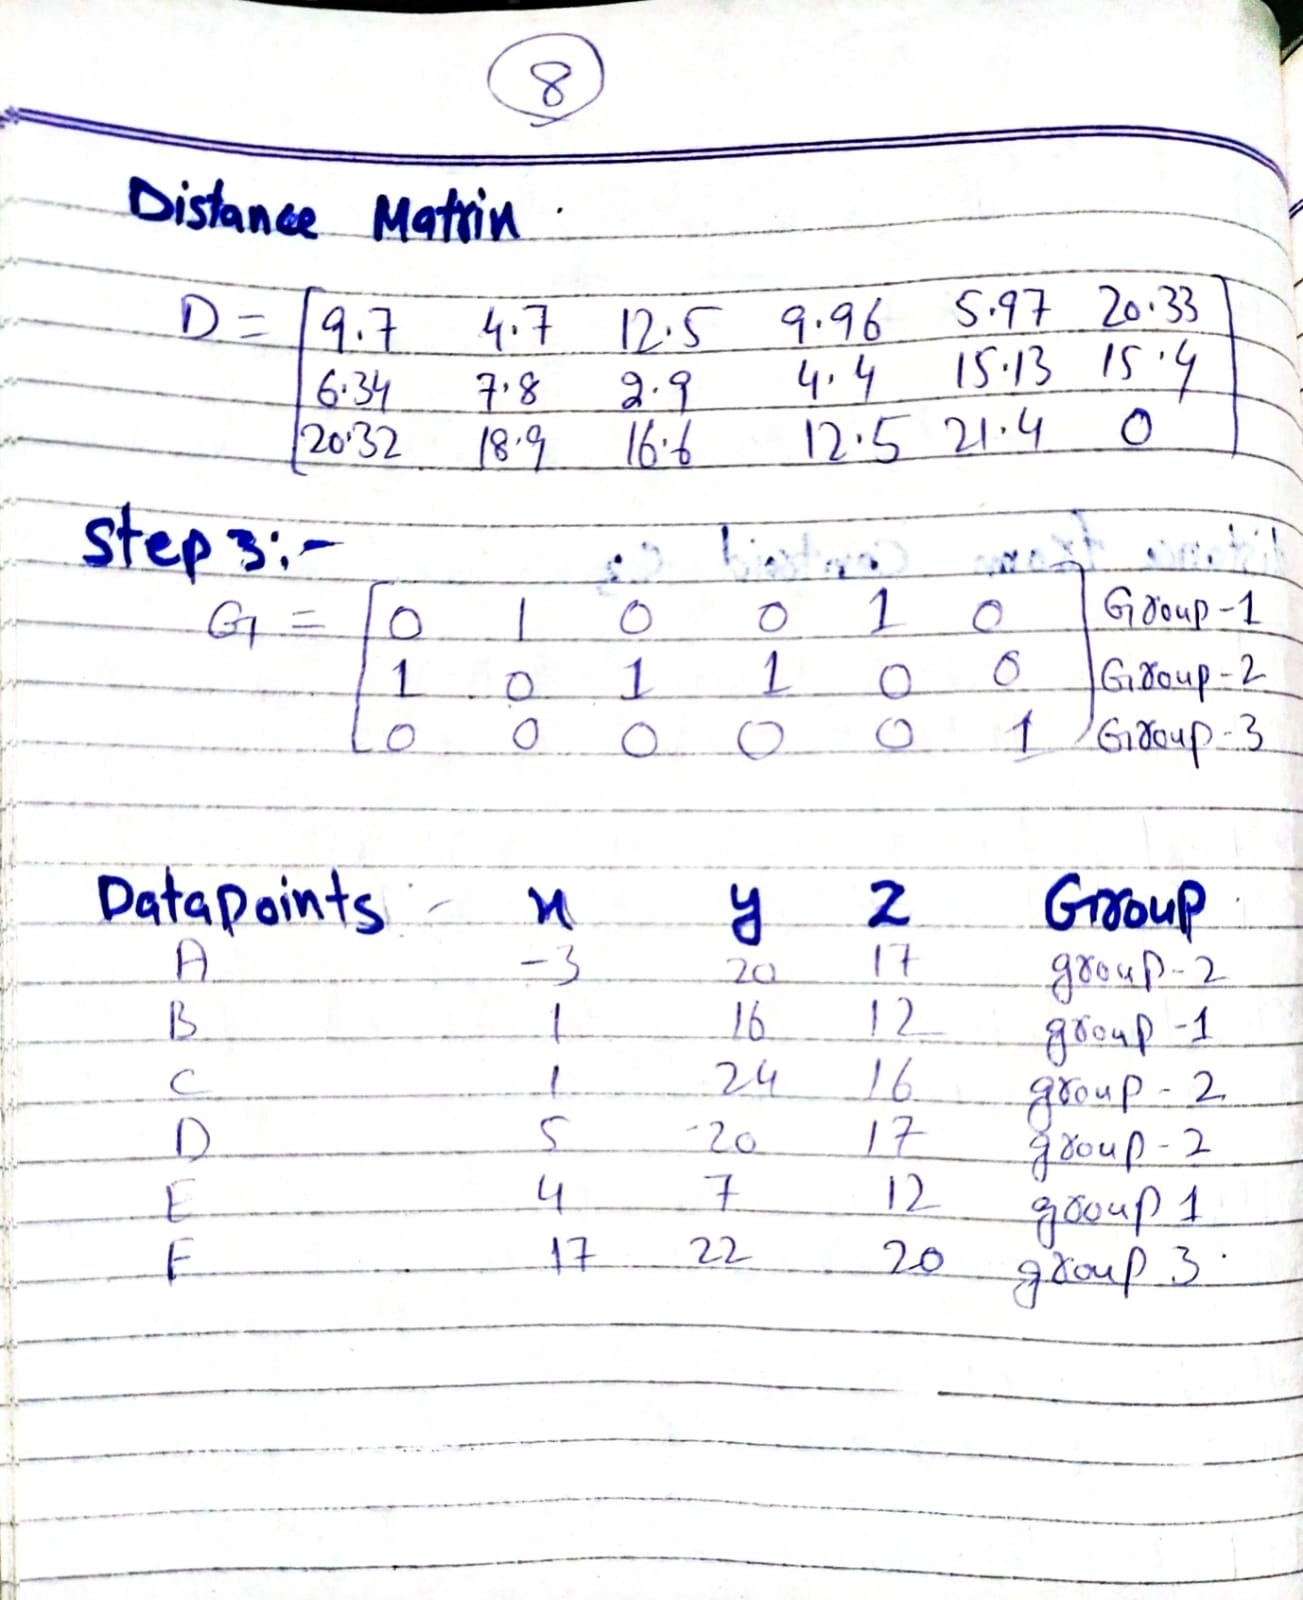 8
Distance Matrix
D = 9.7 4.7 12.5 9.96 5.97 20.33
6.34 7.8 2.9 4.4 15.13 15.4
20.32 18.9 16.6 12.5 21.4 0
Step 3:-
G1 = 0 1 0 0 1 0 Group-1
1 0 1 1 0 0 Group-2
0 0 0 0 0 1 Group-3
Datapoints - x y z Group
A -3 20 17 group-2
B 1 16 12 group-1
C 1 24 16 group-2
D 5 20 17 group-2
E 4 7 12 group 1
F 17 22 20 group 3